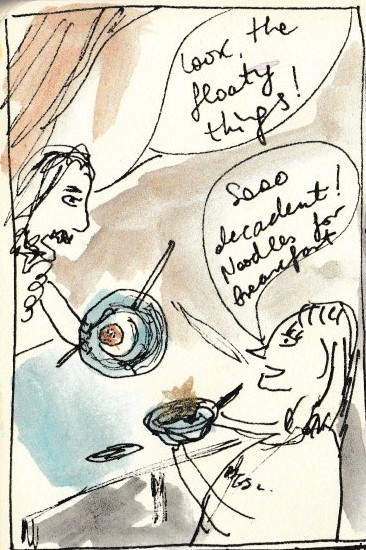 Look, the
floaty
things!
Sooo
decadent!
Noodles for
breakfast